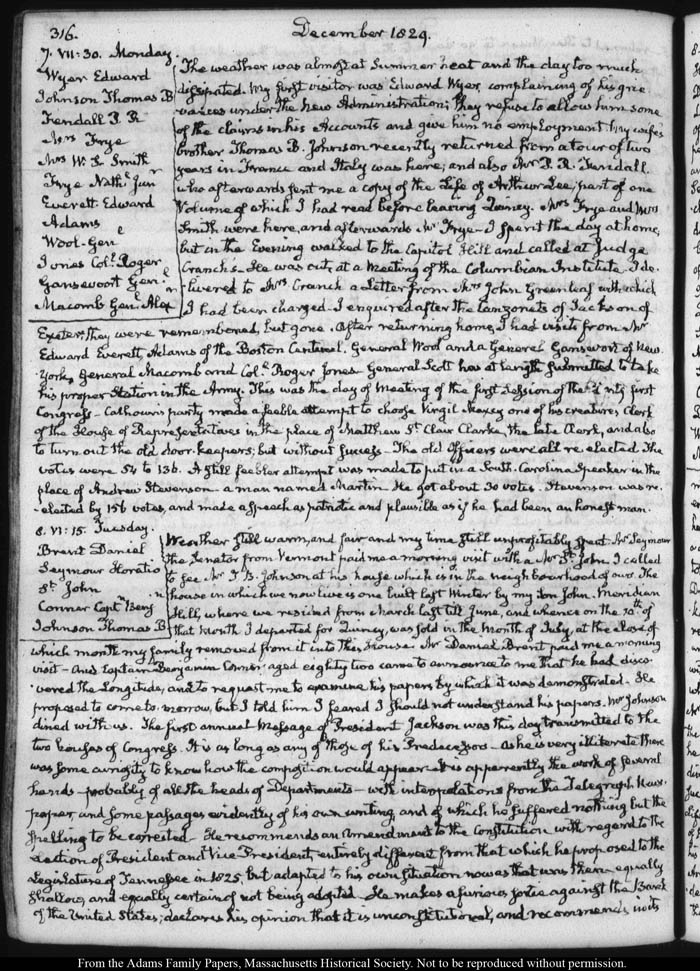 316.
December 1829.
7. VII:30. Monday.
Wyer Edward
Johnson Thomas B
Fendall P. R
Mrs Frye
Mrs W. S. Smith
Frye Nath.l Jun.r
Everett Edward
Adams
Wool. Gen.l
Jones Col. Roger
Gansevoort Gen.l
Macomb Gen.l Alex.n
The weather was almost at Summer heat and the day too much
dissipated. My first visitor was Edward Wyer, complaining of his grie-
vances under the new Administration; they refuse to allow him some
of the claims in his Accounts and give him no employment. My wife's
brother Thomas B. Johnson recently returned from a tour of two
years in France and Italy was here; and also Mr. P. R. Fendall.
who afterwards sent me a copy of the Life of Arthur Lee, part of one
Volume of which I had read before leaving Quincy. Mrs Frye and Mrs
Smith were here, and afterwards Mr Frye. I spent the day at home,
but in the Evening walked to the Capitol Hill and called at Judge
Cranch's. He was out, at a Meeting of the Columbian Institute. I de-
livered to Mrs Cranch a Letter from Mrs John Greenleaf with which
I had been charged. I enquired after the Canzonets of Jackson of
Exeter; they were remembered, but gone. After returning home, I had visits from Mr
Edward Everett, Adams of the Boston Centinel. General Wool and a General Gansevoort of New-
York, General Macomb and Col. Roger Jones. General Scott has at length submitted to take
his proper Station in the Army. This was the day of meeting of the first Session of the twenty first
Congress. Calhoun's party made a feeble attempt to choose Virgil Maxcy one of his creatures, Clerk
of the House of Representatives in the place of Matthew St Clair Clarke, the late Clerk, and also
to turn out the old door-keepers; but without success. The old Officers were all re-elected. The
votes were 54 to 136. A still feebler attempt was made to put in a South-Carolina Speaker in the
place of Andrew Stevenson. a man named Martin. He got about 30 votes. Stevenson was re-
elected by 156 votes, and made a speech as patriotic and plausible as if he had been an honest man.
8. VI:15. Tuesday.
Brent Daniel
Seymour Horatio
St John
Conner Capt.n Benj.n
Johnson Thomas B
Weather still warm, and fair and my time still unprofitably spent. Mr Seymour
the Senator from Vermont paid me a morning visit with a Mr St. John. I called
to see Mr T. B. Johnson at his house which is in the neighbourhood of ours. The
house in which we now live is one built last Winter by my Son John. Meridian
Hill, where we resided from March last till June, and whence on the 10.th of
that Month I departed for Quincy, was sold in the month of July, at the close of
which month my family removed from it into this House. Mr Daniel Brent paid me a morning
visit. And Captain Benjamin Conner aged eighty two came to announce to me that he had disco-
vered the Longitude, and to request me to examine his papers by which it was demonstrated. He
proposed to come to-morrow, but I told him I feared I should not understand his papers. Mr Johnson
dined with us. The first annual Message of President Jackson was this day transmitted to the
two houses of Congress. It is as long as any of those of his Predecessors. As he is very illiterate there
was some curiosity to know how the composition would appear. It is apparently the work of several
hands probably of all the heads of Departments with interpolations from the Telegraph News-
paper, and some passages evidently of his own writing, and of which he suffered nothing but the
spelling to be corrected. He recommends an Amendment to the Constitution with regard to the
election of President and Vice-President, entirely different from that which he proposed to the
Legislature of Tennessee in 1825, but adapted to his own situation now as that was then equally
shallow, and equally certain of not being adopted. He makes a furious sortie against the Bank
of the United States; declares his opinion that it is unconstitutional, and recommends in its
From the Adams Family Papers, Massachusetts Historical Society. Not to be reproduced without permission.